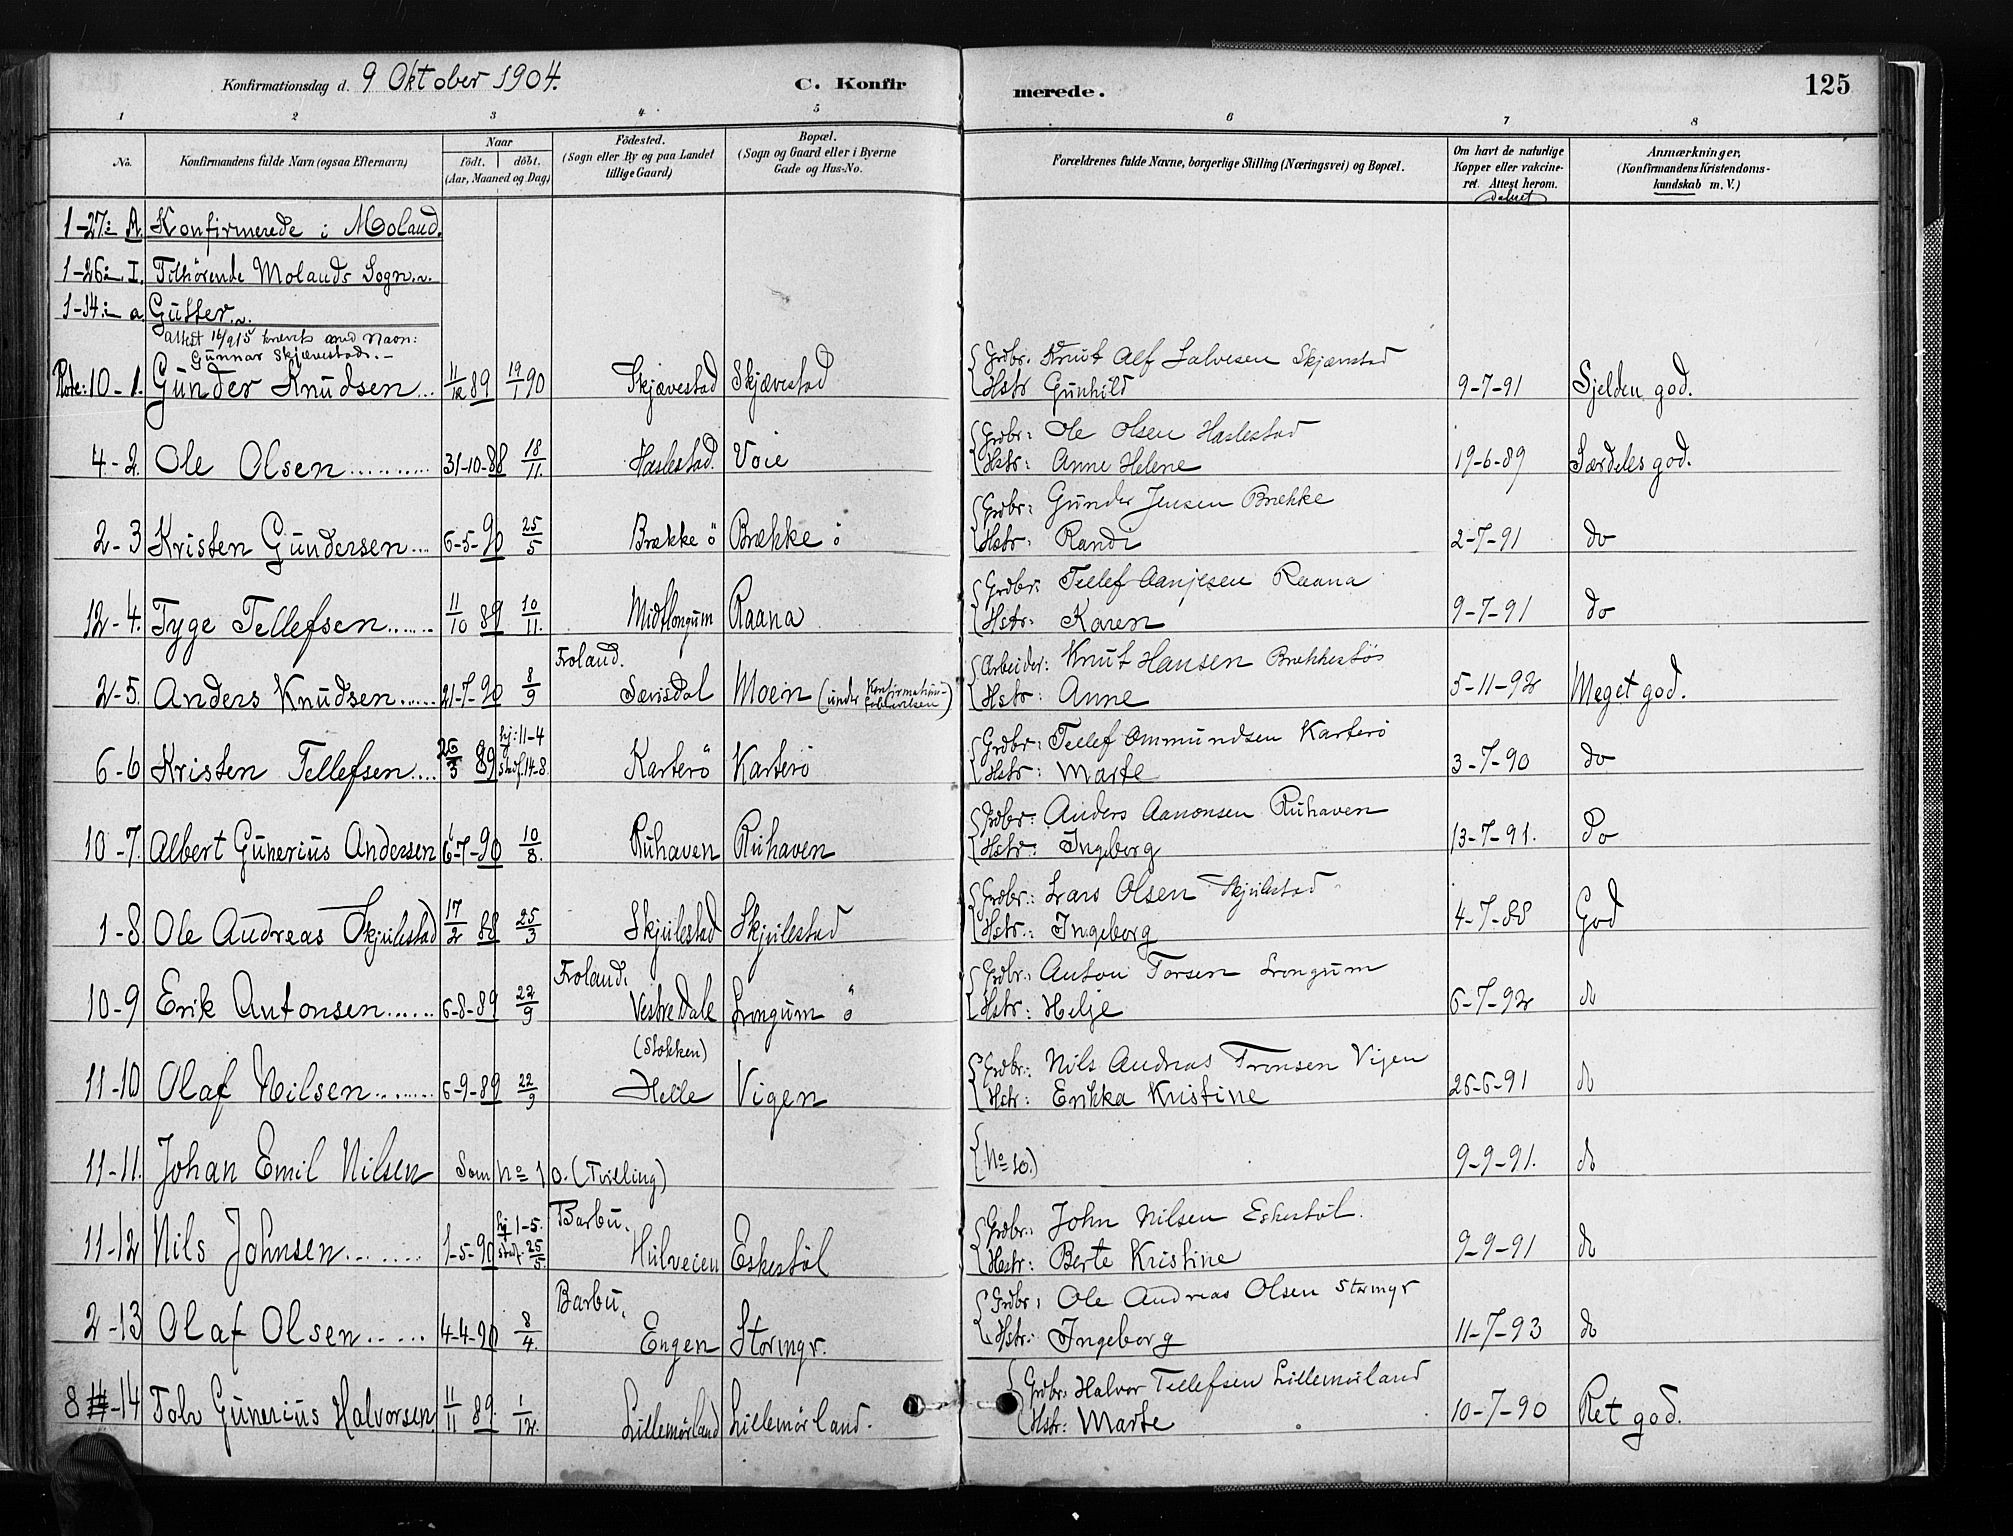 Konfirmationsdag d. 9 Oktober 1904.
C. Konfirmerede.
125
1 2 3 4 5 6 7 8
No.
Konfirmandens fulde Navn (ogsaa Efternavn)
Naar födt. döbt. (Aar, Maaned og Dag)
Födested. (Sogn eller By og paa Landet tillige Gaard)
Bopæl. (Sogn og Gaard eller i Byerne Gade og Hus-No.
Forældrenes fulde Navne, borgerlige Stilling (Næringsvei) og Bopæl.
Om havt de naturlige Kopper eller vakcineret. Attest herom.
Anmærkninger, (Konfirmandens Kristendomskundskab m. V.)
1-27: A. Konfirmerede i Moland.
1-26: I. Tilhörende Molands Sogn.
1-14: a. Gutter.
Attest 14/9 15 med Navn: Gunnar Skjævestad.
Rode: 10-1. Gunder Knudsen... 11/12 89 19/1 90 Skjævestad Skjævestad
Grdbr. Knut Alf Salvesen Skjævestad
Hstr Gunhild 9-7-91 Sjelden god.
4-2. Ole Olsen.......... 31-10-88 18/11 Haslestad. Voie
Grdbr: Ole Olsen Haslestad
Hstr: Anne Helene 19-6-89 Særdeles god.
2-3 Kristen Gundersen... 6-5-90 25/5 Brække ö Brække ö
Grdbr: Gunder Jensen Brække
Hstr: Randi 2-7-91 do
12-4. Tyge Tellefsen....... 11/10 89 10/11. Midtlongum Raana
Grdbr: Tellef Aanjesen Raana
Hstr: Karen 9-7-91 do
2-5. Anders Knudsen..... 21-7-90 8/9 Froland. Sævisdal Moein (under Konfirmations-
Arbeider: Knut Hansen Brækkestøs
Hstr: Anne 5-11-92 Meget god.
6-6 Kristen Tellefsen... 26/3 89 hj: 11-4 stadf. 14-8. Karterö Karterö
Grdbr: Tellef Ommundsen Karterö
Hstr: Marte 3-7-90 do
10-7. Albert Gunerius Andersen 6-7-90 10/8. Ruhaven Ruhaven
Grdbr: Anders Aanonsen Ruhaven
Hstr: Ingeborg 13-7-91. Do
1-8. Ole Andreas Skjulestad 17/2 88 25/3 Skjulestad Skjulestad
Grdbr: Lars Olsen Skjulestad
Hstr: Ingeborg 4-7-88 God
10-9 Erik Antonsen...... 6-8-89 22/9 Froland. Vestre Dale Longum ö
Grdbr: Anton Torsen Longum
Hstr: Helje 6-7-92 do
11-10 Olaf Nilsen........ 6-9-89 22/9 (Stokken) Helle Vigen
Grdbr: Nils Andreas Tronsen Vigen
Hstr: Erikka Kristine 26-6-91 do
11-11. Johan Emil Nilsen Som No 10. (Tvilling)
(No 10.) 9-9-91. do
11-12 Nils Johnsen........ 1-5-90 hj 1-5. stadf. 25/5 Barbu. Hulveien Eskestøl
Grdbr: John Nilsen Eskestøl.
Hstr: Berte Kristine 9-9-91 do
2-13 Olaf Olsen..... 4-4-90 8/4. Barbu. Engen Stormyr.
Grdbr: Ole Andreas Olsen Stormyr
Hstr: Ingeborg 11-7-93 do
8-14 Tolv Gunerius Halvorsen 11/11 89. 1/12. Lillemørland Lillemørland.
Grdbr: Halvor Tellefsen Lillemørland
Hstr: Marte 10-7-90 Ret god.